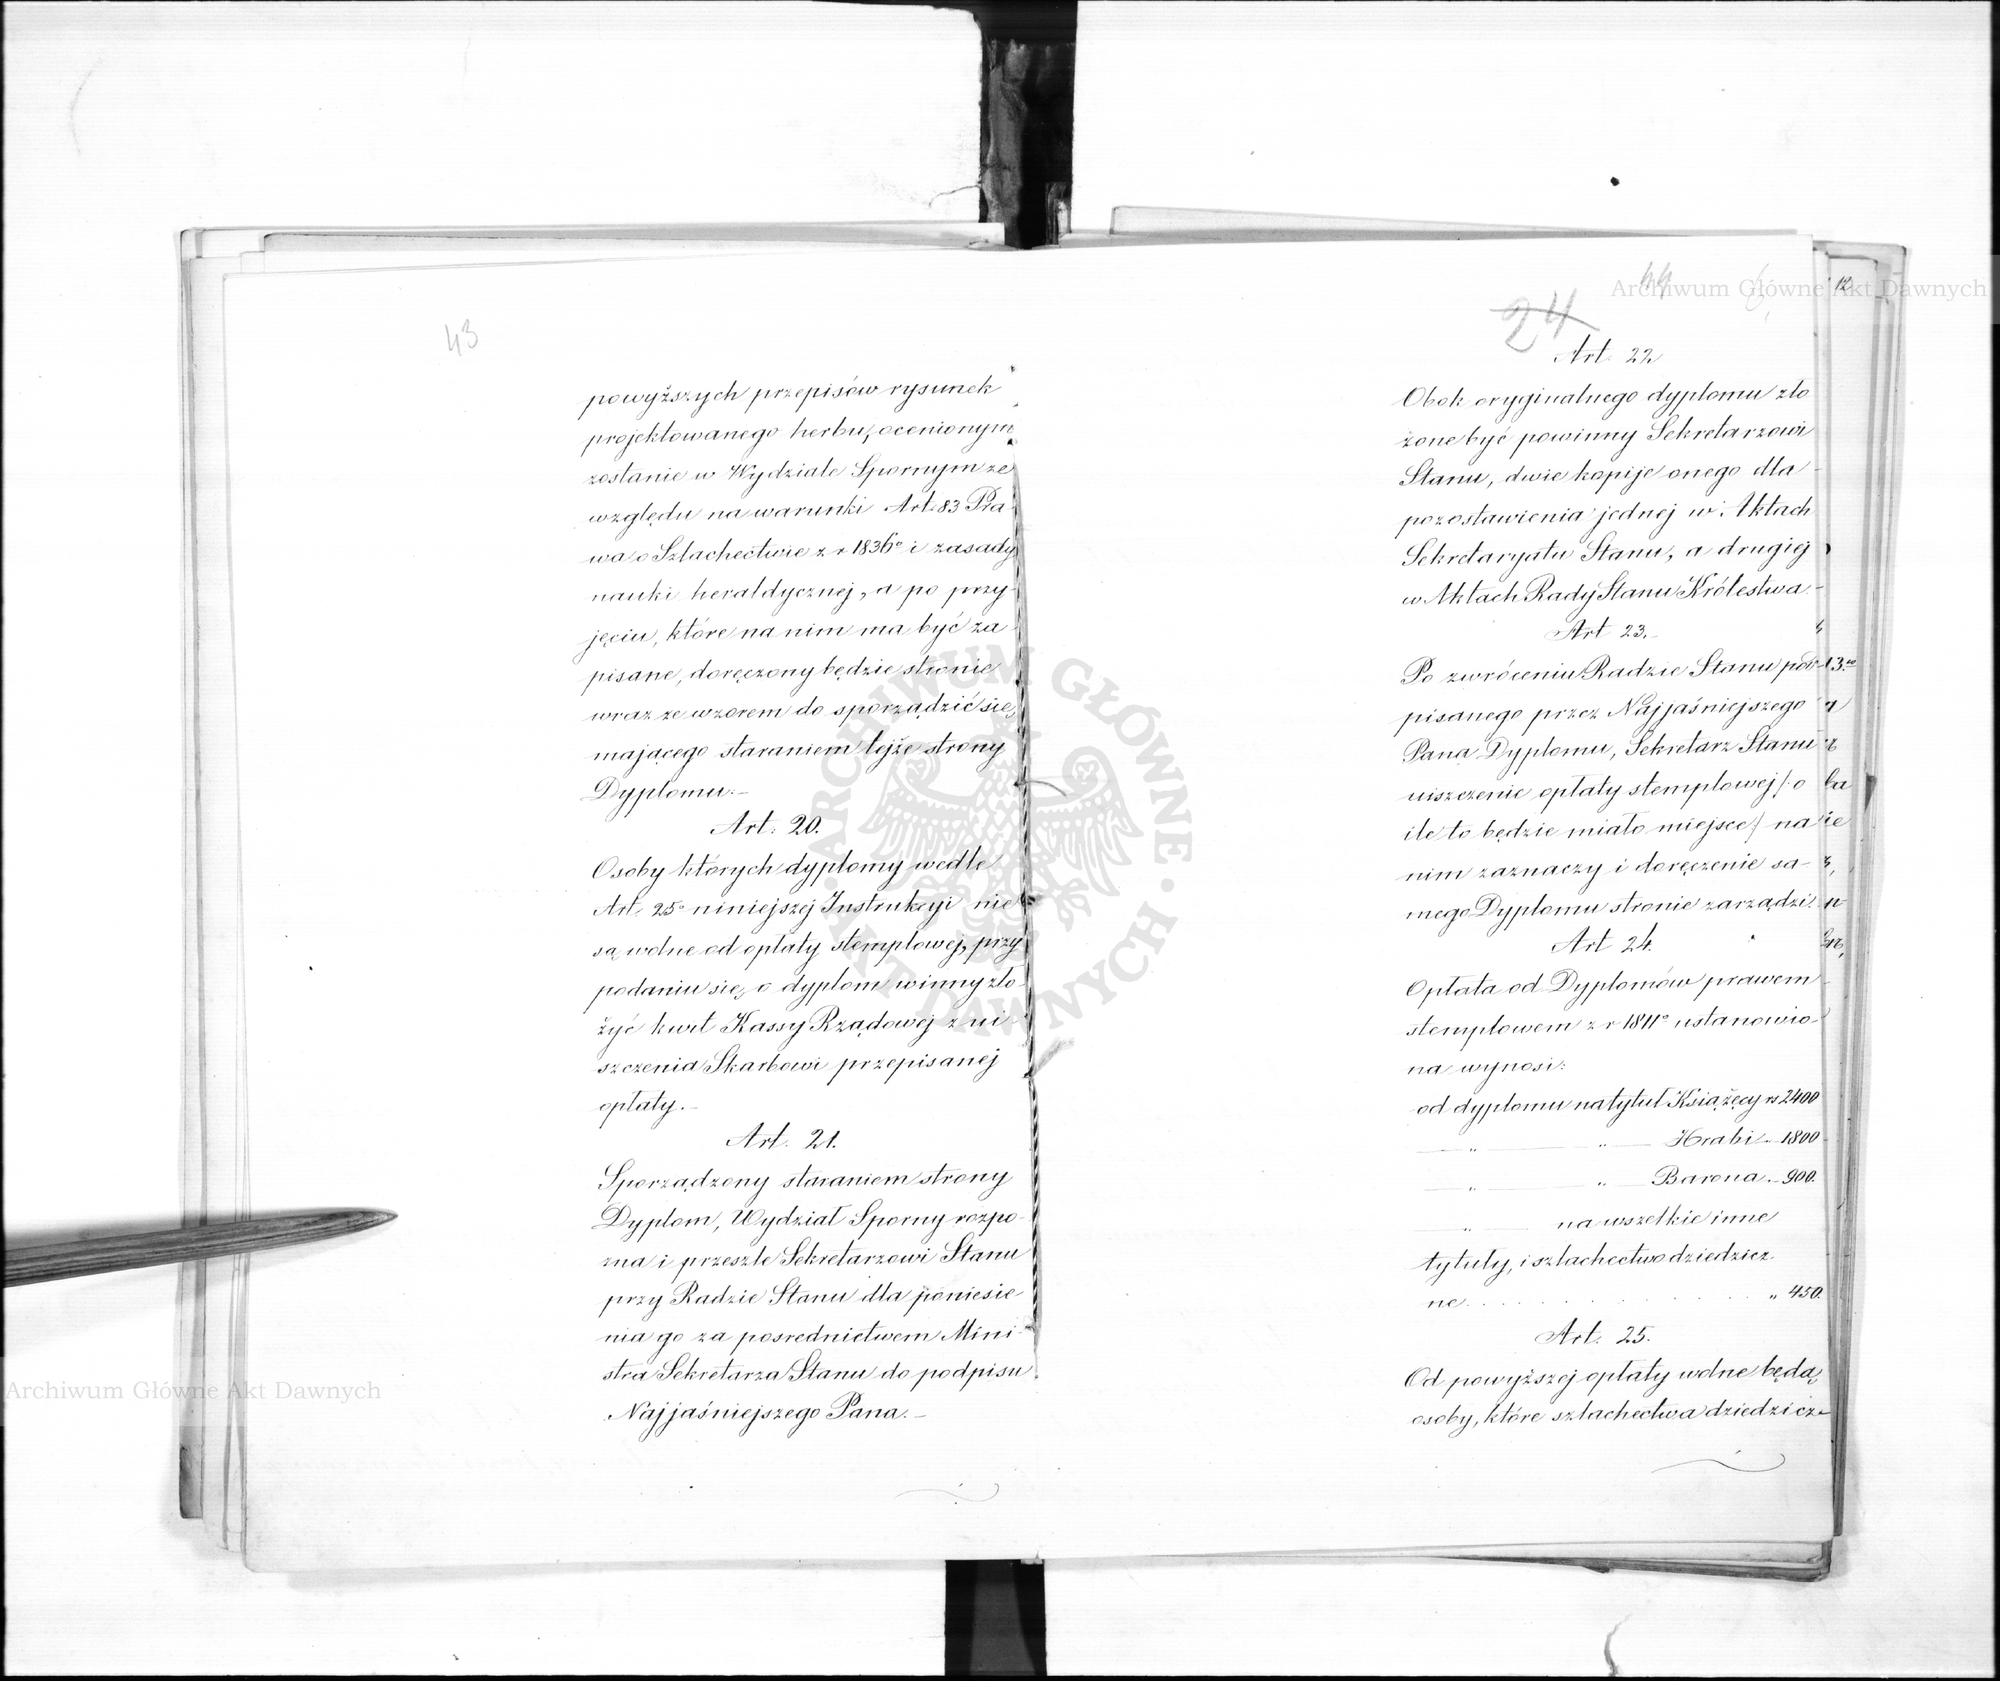 43
powyższych przepisów rysunek
projektowanego herbu, ocenionym
zostanie w Wydziale Spornym ze
względu na warunki Art. 83 Pra
wa o Szlachectwie z r 1836º i zasady
nauki heraldycznej, a po przy-
jęciu, które na nim ma być za-
pisane, doręczony będzie stronie
wraz ze wzorem do sporządzić się
mającego staraniem tejże strony
Dyplomu.-
Art. 20.
Osoby których dyplomy wedle
Art. 25º niniejszej Instrukcyi nie
są wolne od opłaty stemplowej, przy
podaniu się o dyplom winny zło-
żyć kwit Kassy Rządowej z ui-
szczenia Skarbowi przepisanej
opłaty.-
Art. 21.
Sporządzony staraniem strony
Dyplom, Wydział Sporny rozpo-
zna i przeszle Sekretarzowi Stanu
przy Radzie Stanu dla poniesie
nia go za posrednictwem Mini-
stra Sekretarza Stanu do podpisu
Najjaśniejszego Pana.-
44
24
Art. 22
Obok oryginalnego dyplomu zło
żone być powinny Sekretarzowi
Stanu, dwie kopije onego dla
pozostawienia jednej w Aktach
Sekretaryatu Stanu, a drugiej
w Aktach Rady Stanu Królestwa.-
Art 23.-
Po zwróceniu Radzie Stanu pod-
pisanego przez Najjaśniejszego
Pana Dyplomu, Sekretarz Stanu
uiszczenie opłaty stemplowej /: o
ile to będzie miało miejsce :/ na
nim zaznaczy i doręczenie sa-
mego Dyplomu stronie zarządzi.
Art 24.
Opłata od Dyplomów prawem
stemplowem z r 1811º ustanowio-
na wynosi:
od dyplomu na tytuł Książęcy rs 2400
— „ — „ — Hrabi „ 1800
— „ — „ — Barona „ 900.
„ — na wszelkie inne
tytuły, i szlachectwo dziedzicz-
ne . . . . . . . . „ 450.
Art. 25.
Od powyższej opłaty wolne będą
osoby, które szlachectwa dziedzicz-
12
Archiwum Główne Akt Dawnych
Archiwum Główne Akt Dawnych
ARCHIWUM GŁÓWNE AKT DAWNYCH